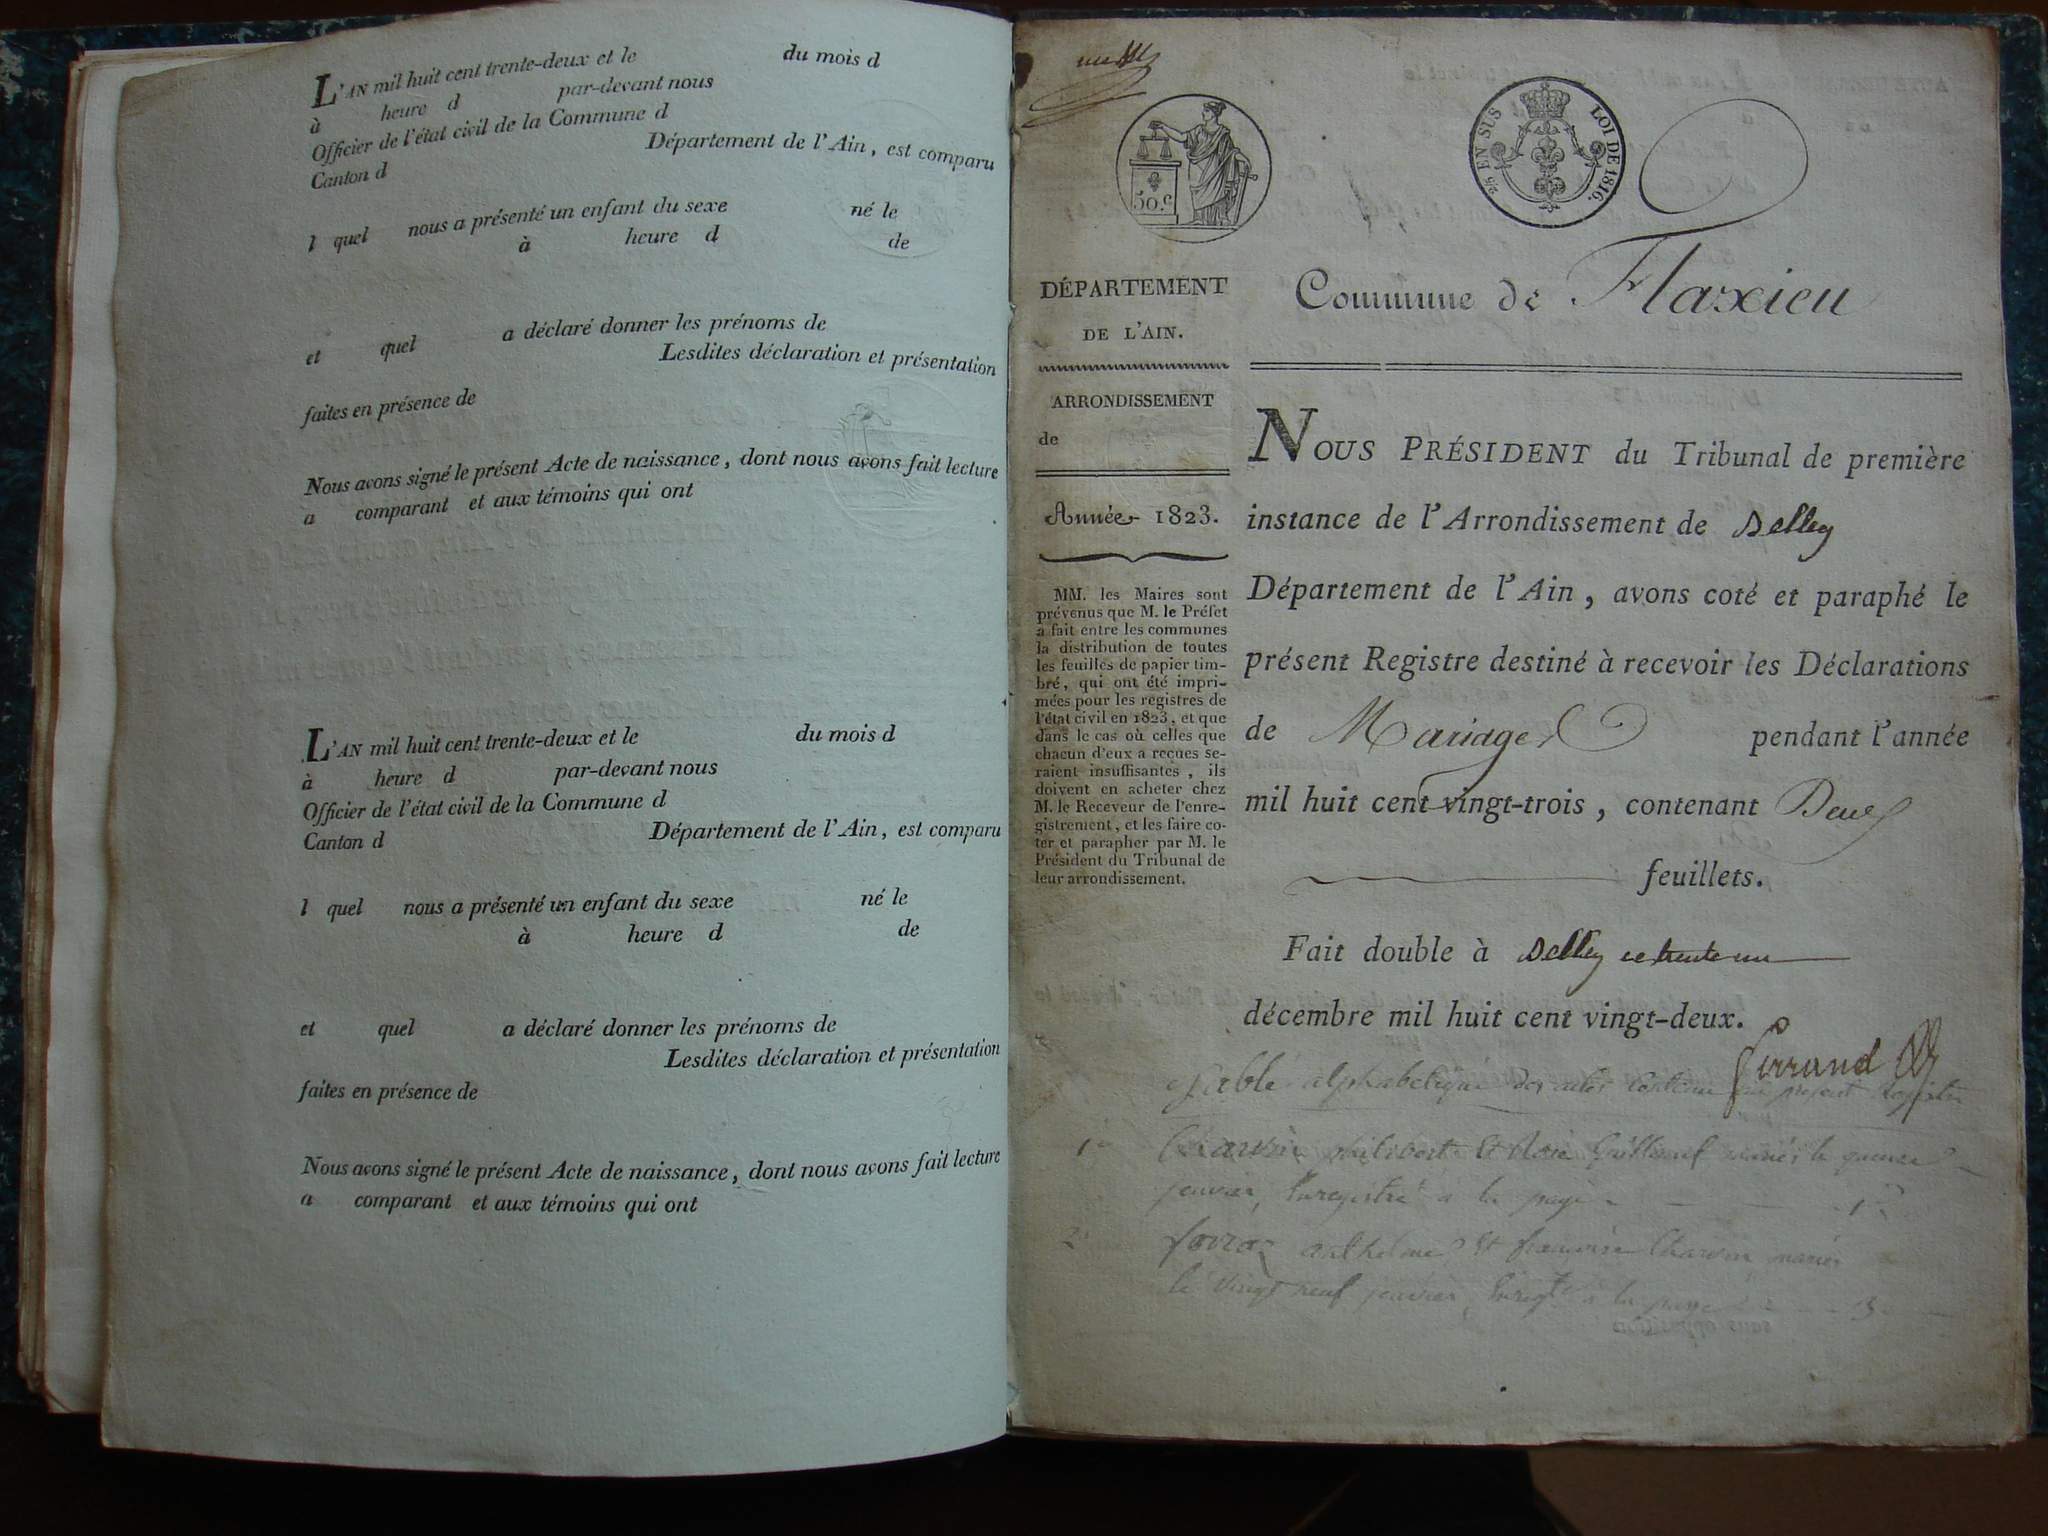 L'AN mil huit cent trente-deux et le du mois d
à heure d par-devant nous
Officier de l'état civil de la Commune d
Canton d Département de l'Ain, est comparu
l quel nous a présenté un enfant du sexe né le
à heure d de
et quel a déclaré donner les prénoms de
Lesdites déclaration et présentation
faites en présence de
Nous avons signé le présent Acte de naissance, dont nous avons fait lecture
a comparant et aux témoins qui ont
L'AN mil huit cent trente-deux et le du mois d
à heure d par-devant nous
Officier de l'état civil de la Commune d
Canton d Département de l'Ain, est comparu
l quel nous a présenté un enfant du sexe né le
à heure d de
et quel a déclaré donner les prénoms de
Lesdites déclaration et présentation
faites en présence de
Nous avons signé le présent Acte de naissance, dont nous avons fait lecture
a comparant et aux témoins qui ont
50.c
EN SUS LOI DE 1816.
DÉPARTEMENT
DE L'AIN.
ARRONDISSEMENT
de
Année 1823.
MM. les Maires sont
prévenus que M. le Préfet
a fait entre les communes
la distribution de toutes
les feuilles de papier tim-
bré, qui ont été impri-
mées pour les registres de
l'état civil en 1823, et que
dans le cas où celles que
chacun d'eux a reçues se-
raient insuffisantes, ils
doivent en acheter chez
M. le Receveur de l'enre-
gistrement, et les faire co-
ter et parapher par M. le
Président du Tribunal de
leur arrondissement.
Commune de Flaxieu
NOUS PRÉSIDENT du Tribunal de première
instance de l'Arrondissement de Belley
Département de l'Ain, avons coté et paraphé le
présent Registre destiné à recevoir les Déclarations
de Mariages pendant l'année
mil huit cent vingt-trois, contenant Deux
feuillets.
Fait double à Belley ce trente un
décembre mil huit cent vingt-deux.
Table alphabetique des actes contenu au present Registre
1° philibert Et Rose mariés le
janvier, Enregistré à la page 1
2 anthelme Et françoise Charvin mariés
le vingt neuf janvier, à la page 3